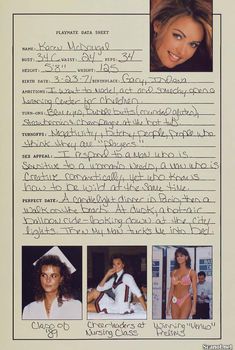 PLAYMATE DATA SHEET
NAME: Karen McDougal
BUST: 34C WAIST: 24 HIPS: 34
HEIGHT: 5'8" WEIGHT: 125
BIRTH DATE: 3-23-71 BIRTHPLACE: Gary, Indiana
AMBITIONS: I want to model, act and someday open a
learning center for children.
TURN-ONS:
TURNOFFS: Negativity, bitchy people, people who
think they are "players"
SEX APPEAL: I respond to a man who is
sensitive to a woman's needs, a man who is
creative romantically, yet who knows
how to be wild at the same time.
PERFECT DATE: A candlelight dinner in Paris, then a
walk on the beach. At dusk, a hot-air
balloon ride - looking down at the city
lights. Then my man tucks me into bed.
Class of
'89
Cheerleaders at
Nursing Class
Winning "Venus"